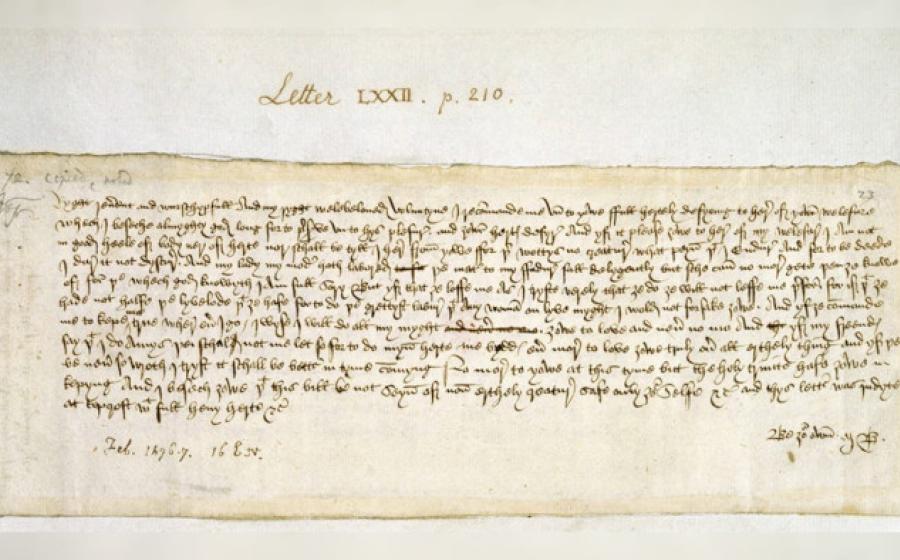 Letter LXXII. p. 210.
23
Ryght reverent and wurschypfull and my ryght welebeloved Voluntyne I recommande me vn to yowe full hertely desyring to here of yowr welefare
whech I beseche almyghty god long for to preserve vn to hys plesure and yowr hertys desyre And yf it please yowe to here of my welefare I am not
in good heele of body ner of herte nor schall be tyll I here from yowe ffor þer wottys no creature what peyn þt I endure And for to be deede
I dure it not dyscure And my lady my moder hath labored þe mater to my ffadure full delygently but sche can no more gete þen ze knowe
of for þe whech god knowyth I am full sory But yf that ze loffe me As I tryste verely that ze do ze will not leffe me þerfor for if þt ze
hade not halfe þe lyvelode þt ze hafe for to do þe grettyst labure þt any woman on lyve myght I wold not forsake zowe And yf ze commande
me to kepe me true wher ever I go I wyse I will do all my myght zowe to love and never no mo And yf my freendys
say þt I do Amys þei schal not me let so for to do myn herte me byddys ever more to love zowe truly over all erthely thing and yf þei
be never so wroth I tryst it schall be better in tyme commyng No more to yowe at this tyme but the holy trinite hafe zowe in
kepyng And I besech zowe þt this bill be not seyn of non erthely creature safe only zour selfe &c and thys letter was indyte
at Topcroft wt full hevy herte &c
Be zour own M B.
Feb. 1476-7. 16 E. iv.